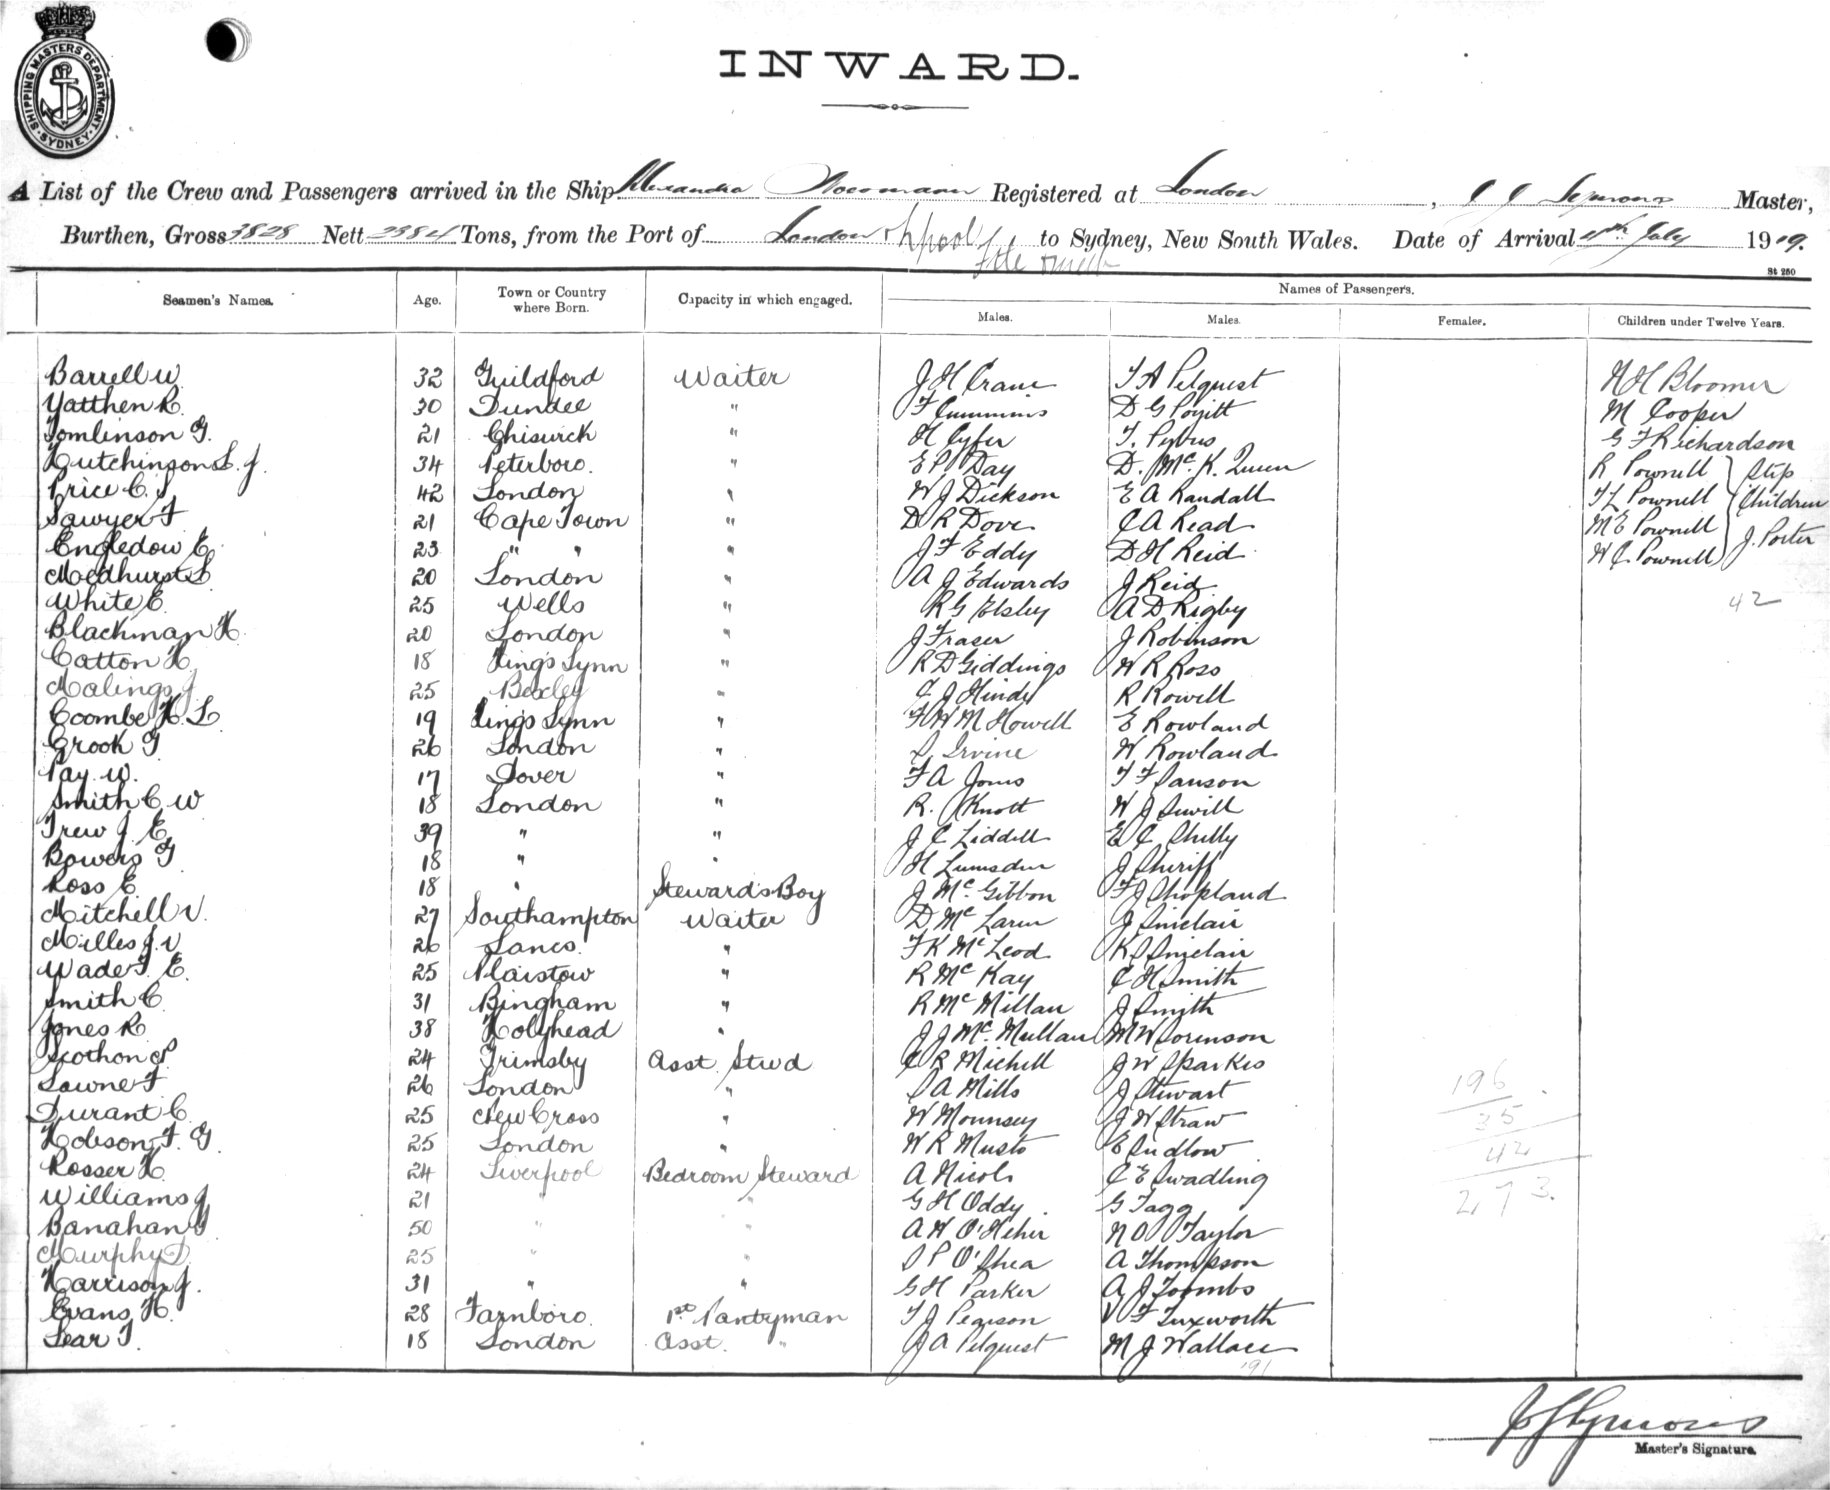 SHIPPING MASTERS DEPARTMENT SYDNEY
INWARD.
A List of the Crew and Passengers arrived in the Ship Alexandra Registered at London, Master,
Burthen, Gross 3828 Nett Tons, from the Port of London L'pool to Sydney, New South Wales. Date of Arrival July 1909.
St 250
Seamen's Names. Age. Town or Country where Born. Capacity in which engaged. Names of Passengers.
Males. Males. Females. Children under Twelve Years.
Barrell W. 32 Guildford Waiter J H Crane T A Pelquest H H Bloomer
Yatthen R. 30 Dundee " F Cummins D G Poyitt M Cooper
Tomlinson G. 21 Chiswick " H Cyfer T. Pybus G F Richardson
Hutchinson L. J. 34 Peterboro. " E P Day D. McK. Quinn R Pownell Step
Price C. S. 42 London " W J Dickson E A Randall F L Pownell Children
Sawyer F 21 Cape Town " D R Dove C A Read M E Pownell
Engledow E. 23 " " " J F Eddy D H Reid W C Pownell J. Porter
Medhurst S 20 London " A J Edwards J Reid
White E. 25 Wells " R G Elsley A D Rigby 42
Blackman H. 20 London " J Fraser J Robinson
Catton H. 18 Kings Lynn " R D Giddings W R Ross
Malings J. 25 Bexley " J Hinds R Rowell
Coombe H. L. 19 Kings Lynn " F W M Howell E Rowland
Crook G 26 London " S. Irvine W Rowland
Pay. W. 17 Dover " F A Jones T F Sanson
Smith C. W 18 London " R. Knott W J Sewill
Trew J. E. 39 " " J C Liddell E C Shelly
Bowers G 18 " " H Lumsden J Sheriff
Ross E. 18 " Stewards Boy J McGibbon F J Shopland
Mitchell V. 27 Southampton Waiter D McLaren J Sinclair
Milles J. V. 26 Lancs. " F K McLeod K S Sinclair
Wade F. E. 25 Plaistow " R McKay C H Smith
Smith C. 31 Bingham " R McMillan J Smith
Jones R 38 Holyhead " J J McMullan M W Sorenson
Scothon P 24 Grimsby Asst. Stwd C R Michell J W Sparkes
Lawne F 26 London " S A Mills J Stewart 196
Durant C. 25 New Cross " W Mounsey J W Straw 35
Hobson F. G. 25 London " W R Musto E Sudlow 42
Rosser H. 24 Liverpool Bedroom Steward A Nicols C E Swadling 273.
Williams J 21 " " G H Oddy G Tagg
Banahan J 50 " " A W O'Meher N O Taylor
Murphy D. 25 " " S P O'Shea A Thompson
Harrison J. 31 " " G H Parker A J Toombs
Evans H. 28 Farnboro. 1st Pantryman T J Pearson V F Tuxworth
Lear T. 18 London Asst. " J A Pelquest M J Wallace
191
J S Symons
Master's Signature.